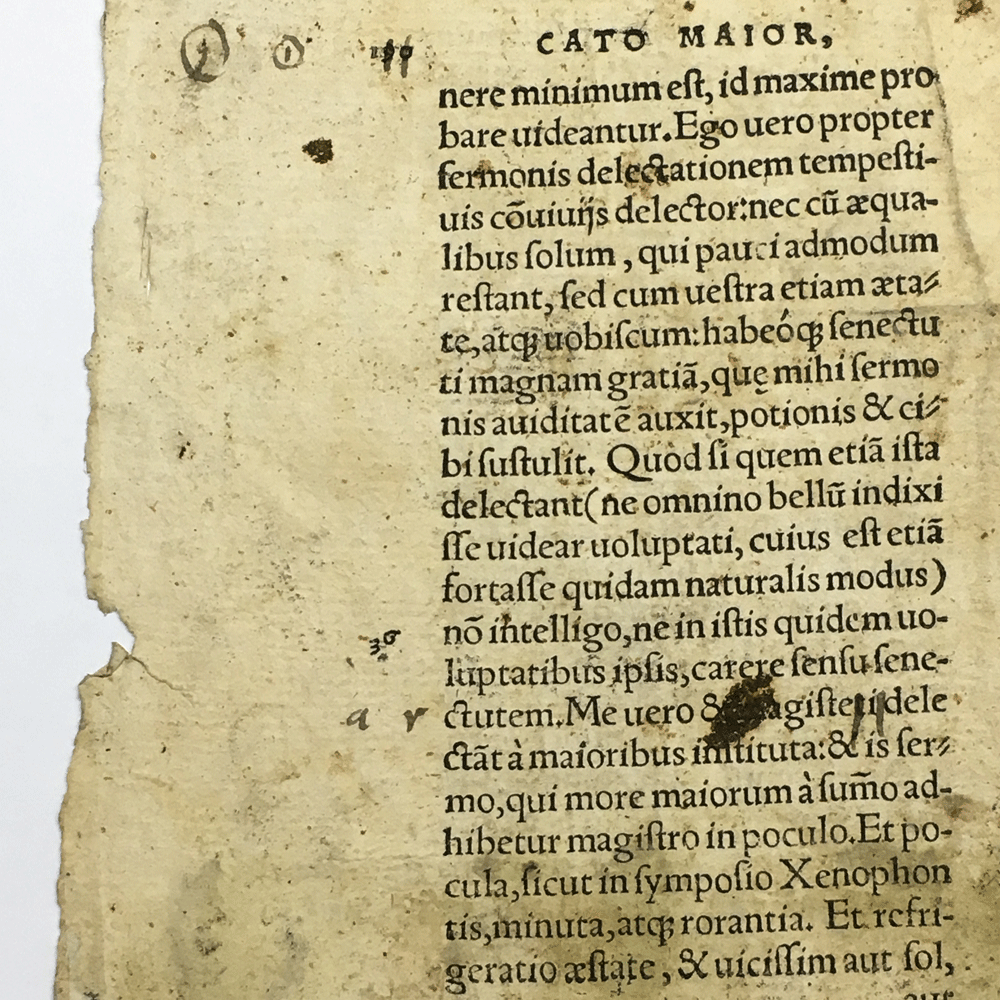 CATO MAIOR,
nere minimum eſt, id maxime pro
bare uideantur. Ego uero propter
ſermonis delectationem tempeſti-
uis cõuiuijs delector: nec cũ æqua-
libus ſolum, qui pauci admodum
reſtant, ſed cum ueſtra etiam æta-
te, atqꝫ uobiſcum: habeóqꝫ ſenectu
ti magnam gratiã, quę mihi ſermo
nis auiditatẽ auxit, potionis & ci-
bi ſuſtulit. Quòd ſi quem etiã iſta
delectant (ne omnino bellũ indixi
ſſe uidear uoluptati, cuius eſt etiã
fortaſſe quidam naturalis modus)
nõ intelligo, ne in iſtis quidem uo-
36
luptatibus ipſis, carere ſenſu ſene-
a r
ctutem. Me uero & magiſterij dele
ctãt à maioribus inſtituta: & is ſer-
mo, qui more maiorum à ſum̃o ad-
hibetur magiſtro in poculo. Et po-
cula, ſicut in ſympoſio Xenophon
tis, minuta, atqꝫ rorantia. Et refri-
geratio æſtate, & uiciſſim aut ſol,
aut